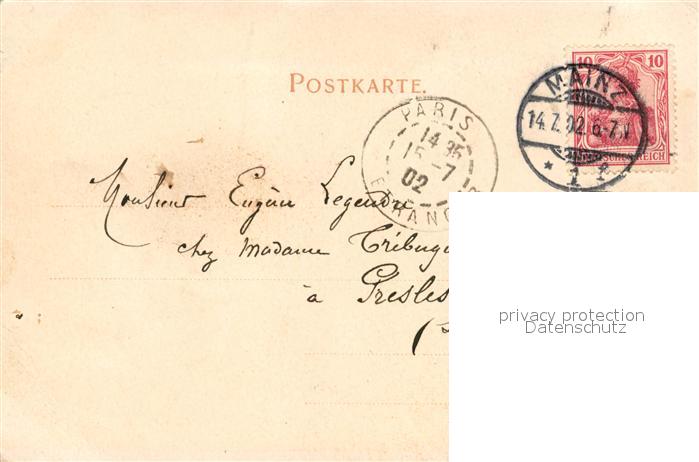 POSTKARTE.
10 10
MAINZ
14.7.02.6-7.V
* 1 f
PARIS
14 35
15 -7
02
ETRANGER
Monsieur Eugène Legendre
chez Madame
à Presles
privacy protection
Datenschutz